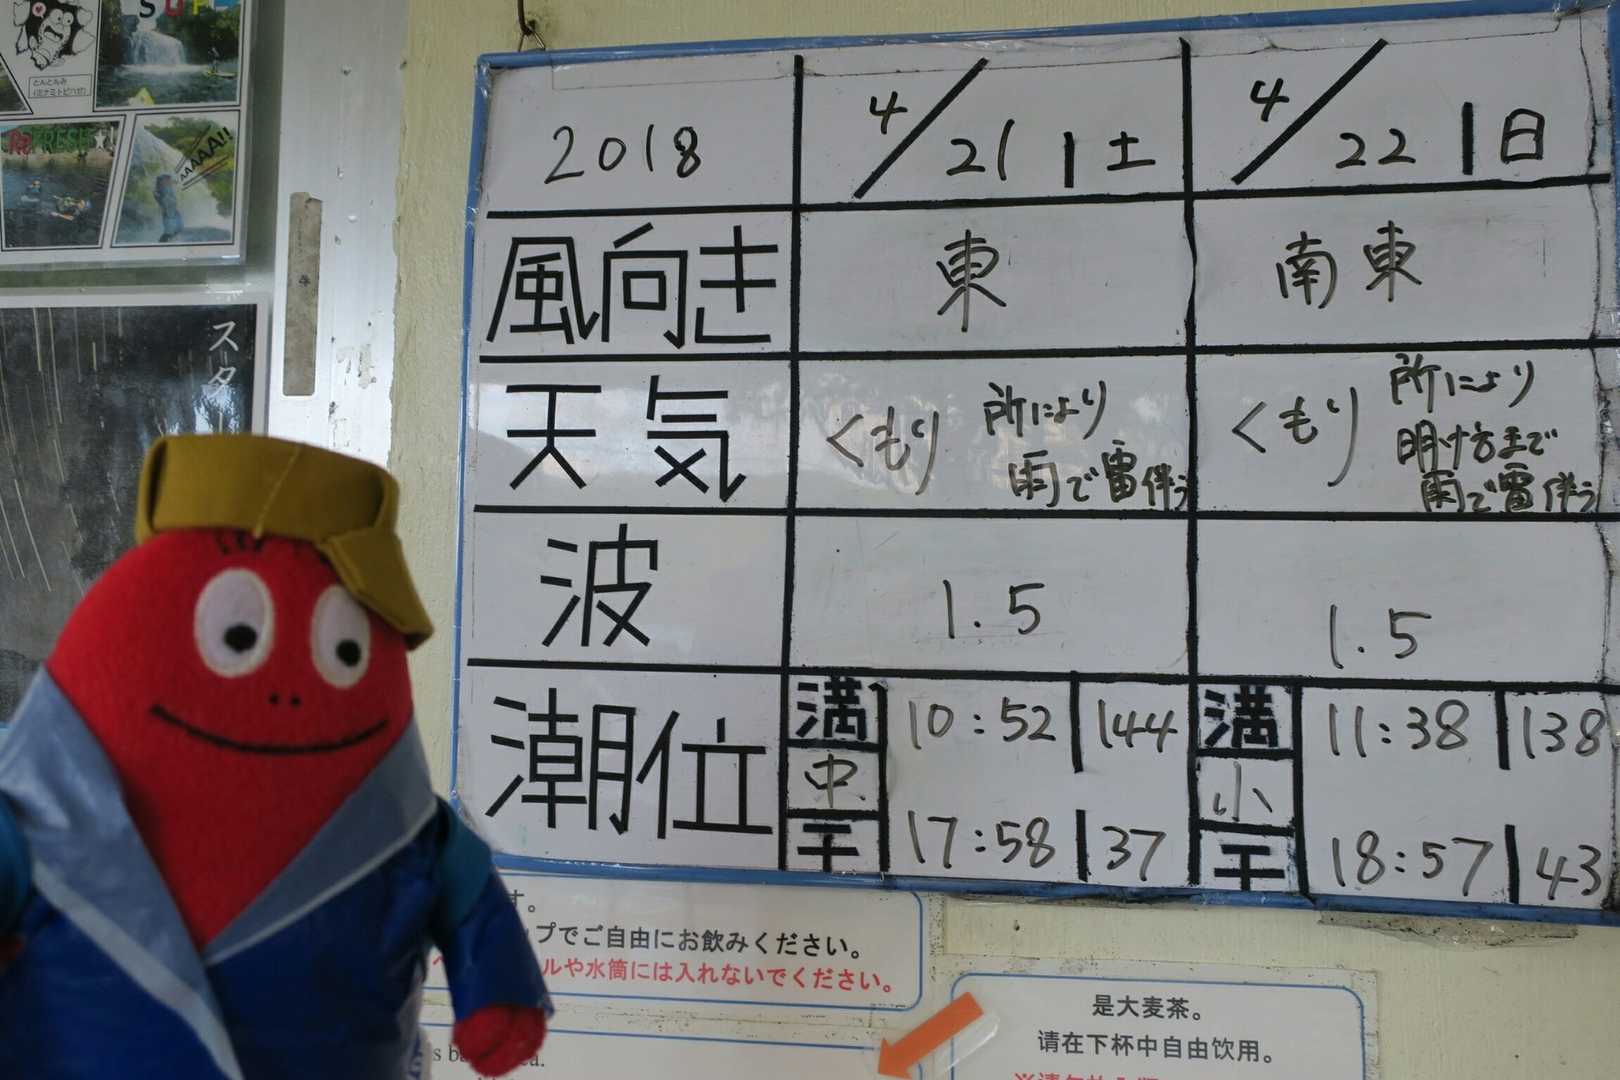 SUP
とんとんみ
(ミナミトビハゼ)
REFRESH
AAAA!!
スター
2018 4/21 土 4/22 日
風向き 東 南東
天気 くもり 所により 雨で雷伴う くもり 所により 明け方まで 雨で雷伴う
波 1.5 1.5
潮位 満 10:52 144 満 11:38 138
中 小
干 17:58 37 干 18:57 43
す。
ップでご自由にお飲みください。
ルや水筒には入れないでください。
是大麦茶。
请在下杯中自由饮用。